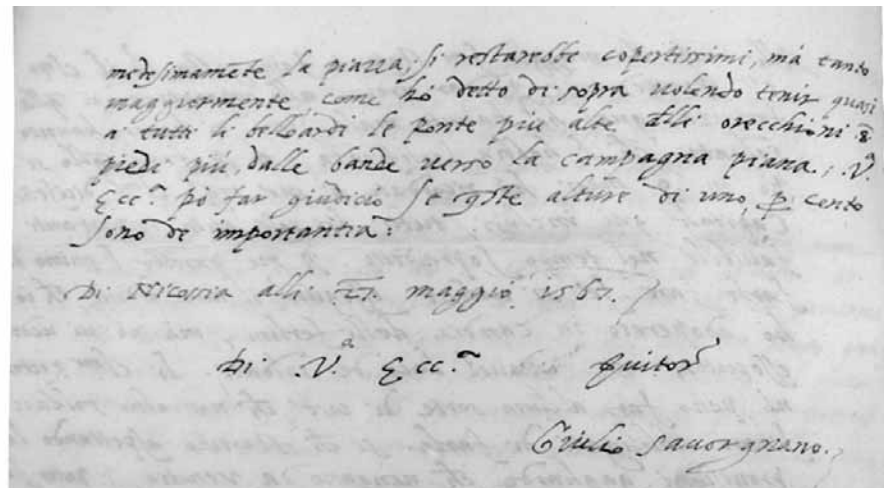 medesimamẽte la piazza; si restarebbe copertissimi, má tanto
maggiormente come hó detto di sopra uolendo tenir quasi
a tutti li belloardi le ponte piu alte alli orecchioni 8
piedi piú, dalle bande uerso la campagna piana, .V.ª
Ecc.ª pó far giudicio se q̃ste alture di uno, p̱ cento
sono de importantia:
Di Nicossia alli 27. maggio 1567.
Di .V.ª Ecc.ª seruitorͤ
Giulio Sauorgnano.